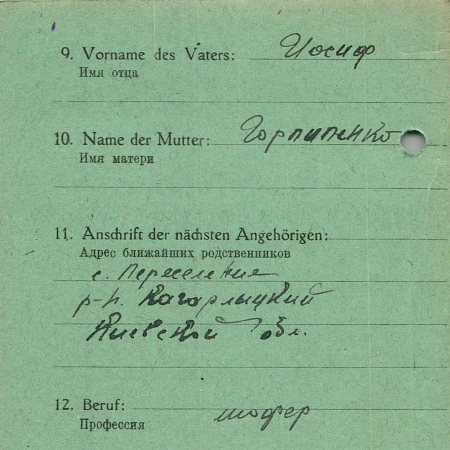 9. Vorname des Vaters: Иосиф
Имя отца
10. Name der Mutter: Горпиненко
Имя матери
11. Anschrift der nächsten Angehörigen:
Адрес ближайших родственников
с. Переселение
р-н. Кагарлыцкий
Киевской обл.
12. Beruf: шофер
Профессия